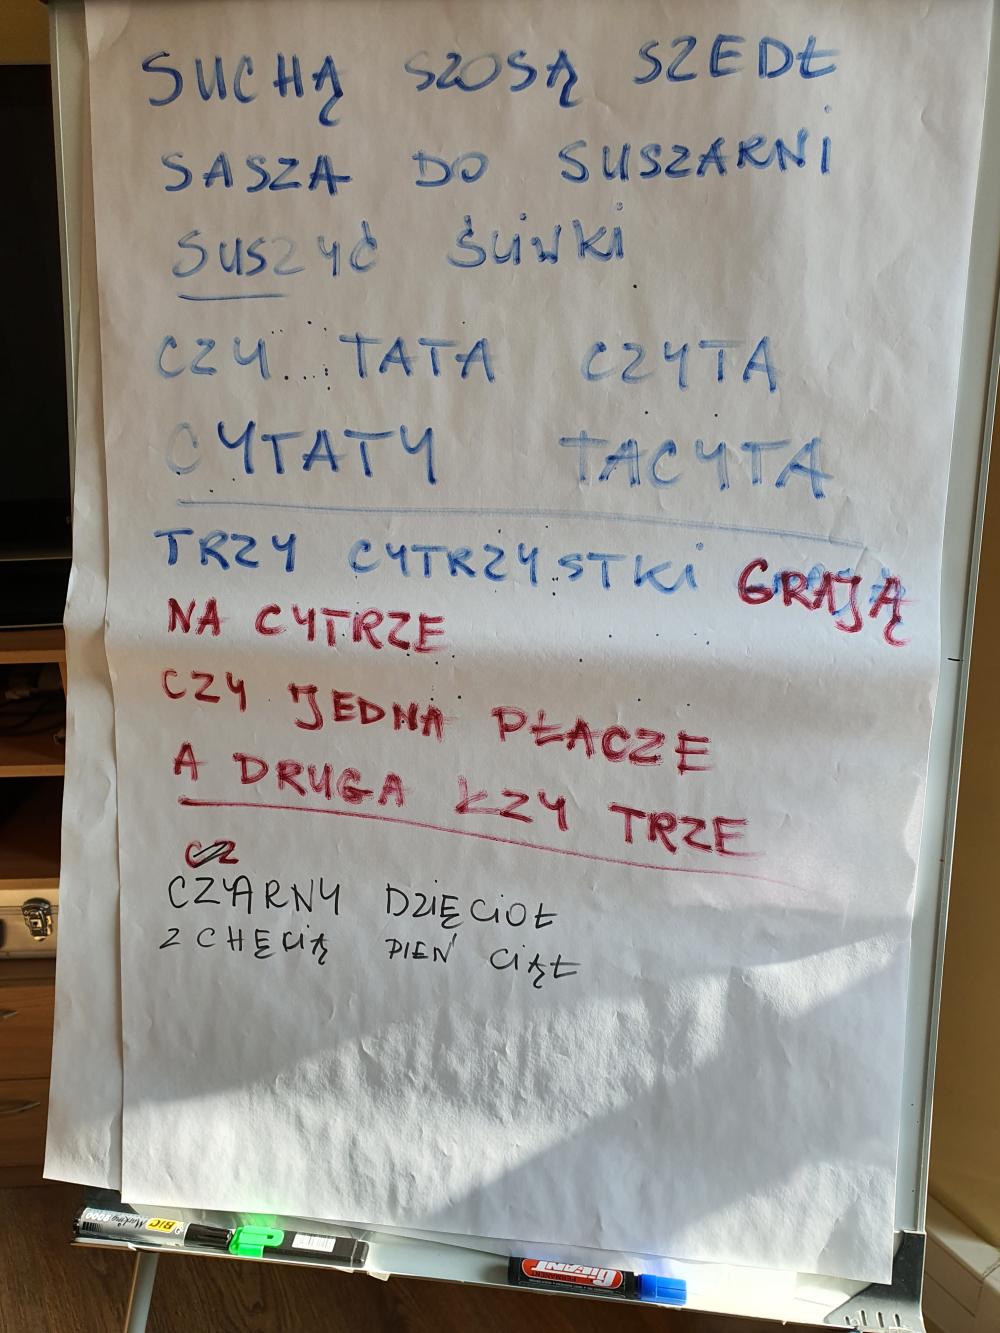 SUCHĄ SZOSĄ SZEDŁ
SASZA DO SUSZARNI
SUSZYĆ ŚLIWKI
CZY... TATA CZYTA
CYTATY TACYTA
TRZY CYTRZYSTKI GRAJĄ
NA CYTRZE
CZY JEDNA PŁACZE
A DRUGA ŁZY TRZE
CZ
CZARNY DZIĘCIOŁ
Z CHĘCIĄ PIEŃ CIĄŁ
BIC Marking 2000
GIGANT
PERMANENT